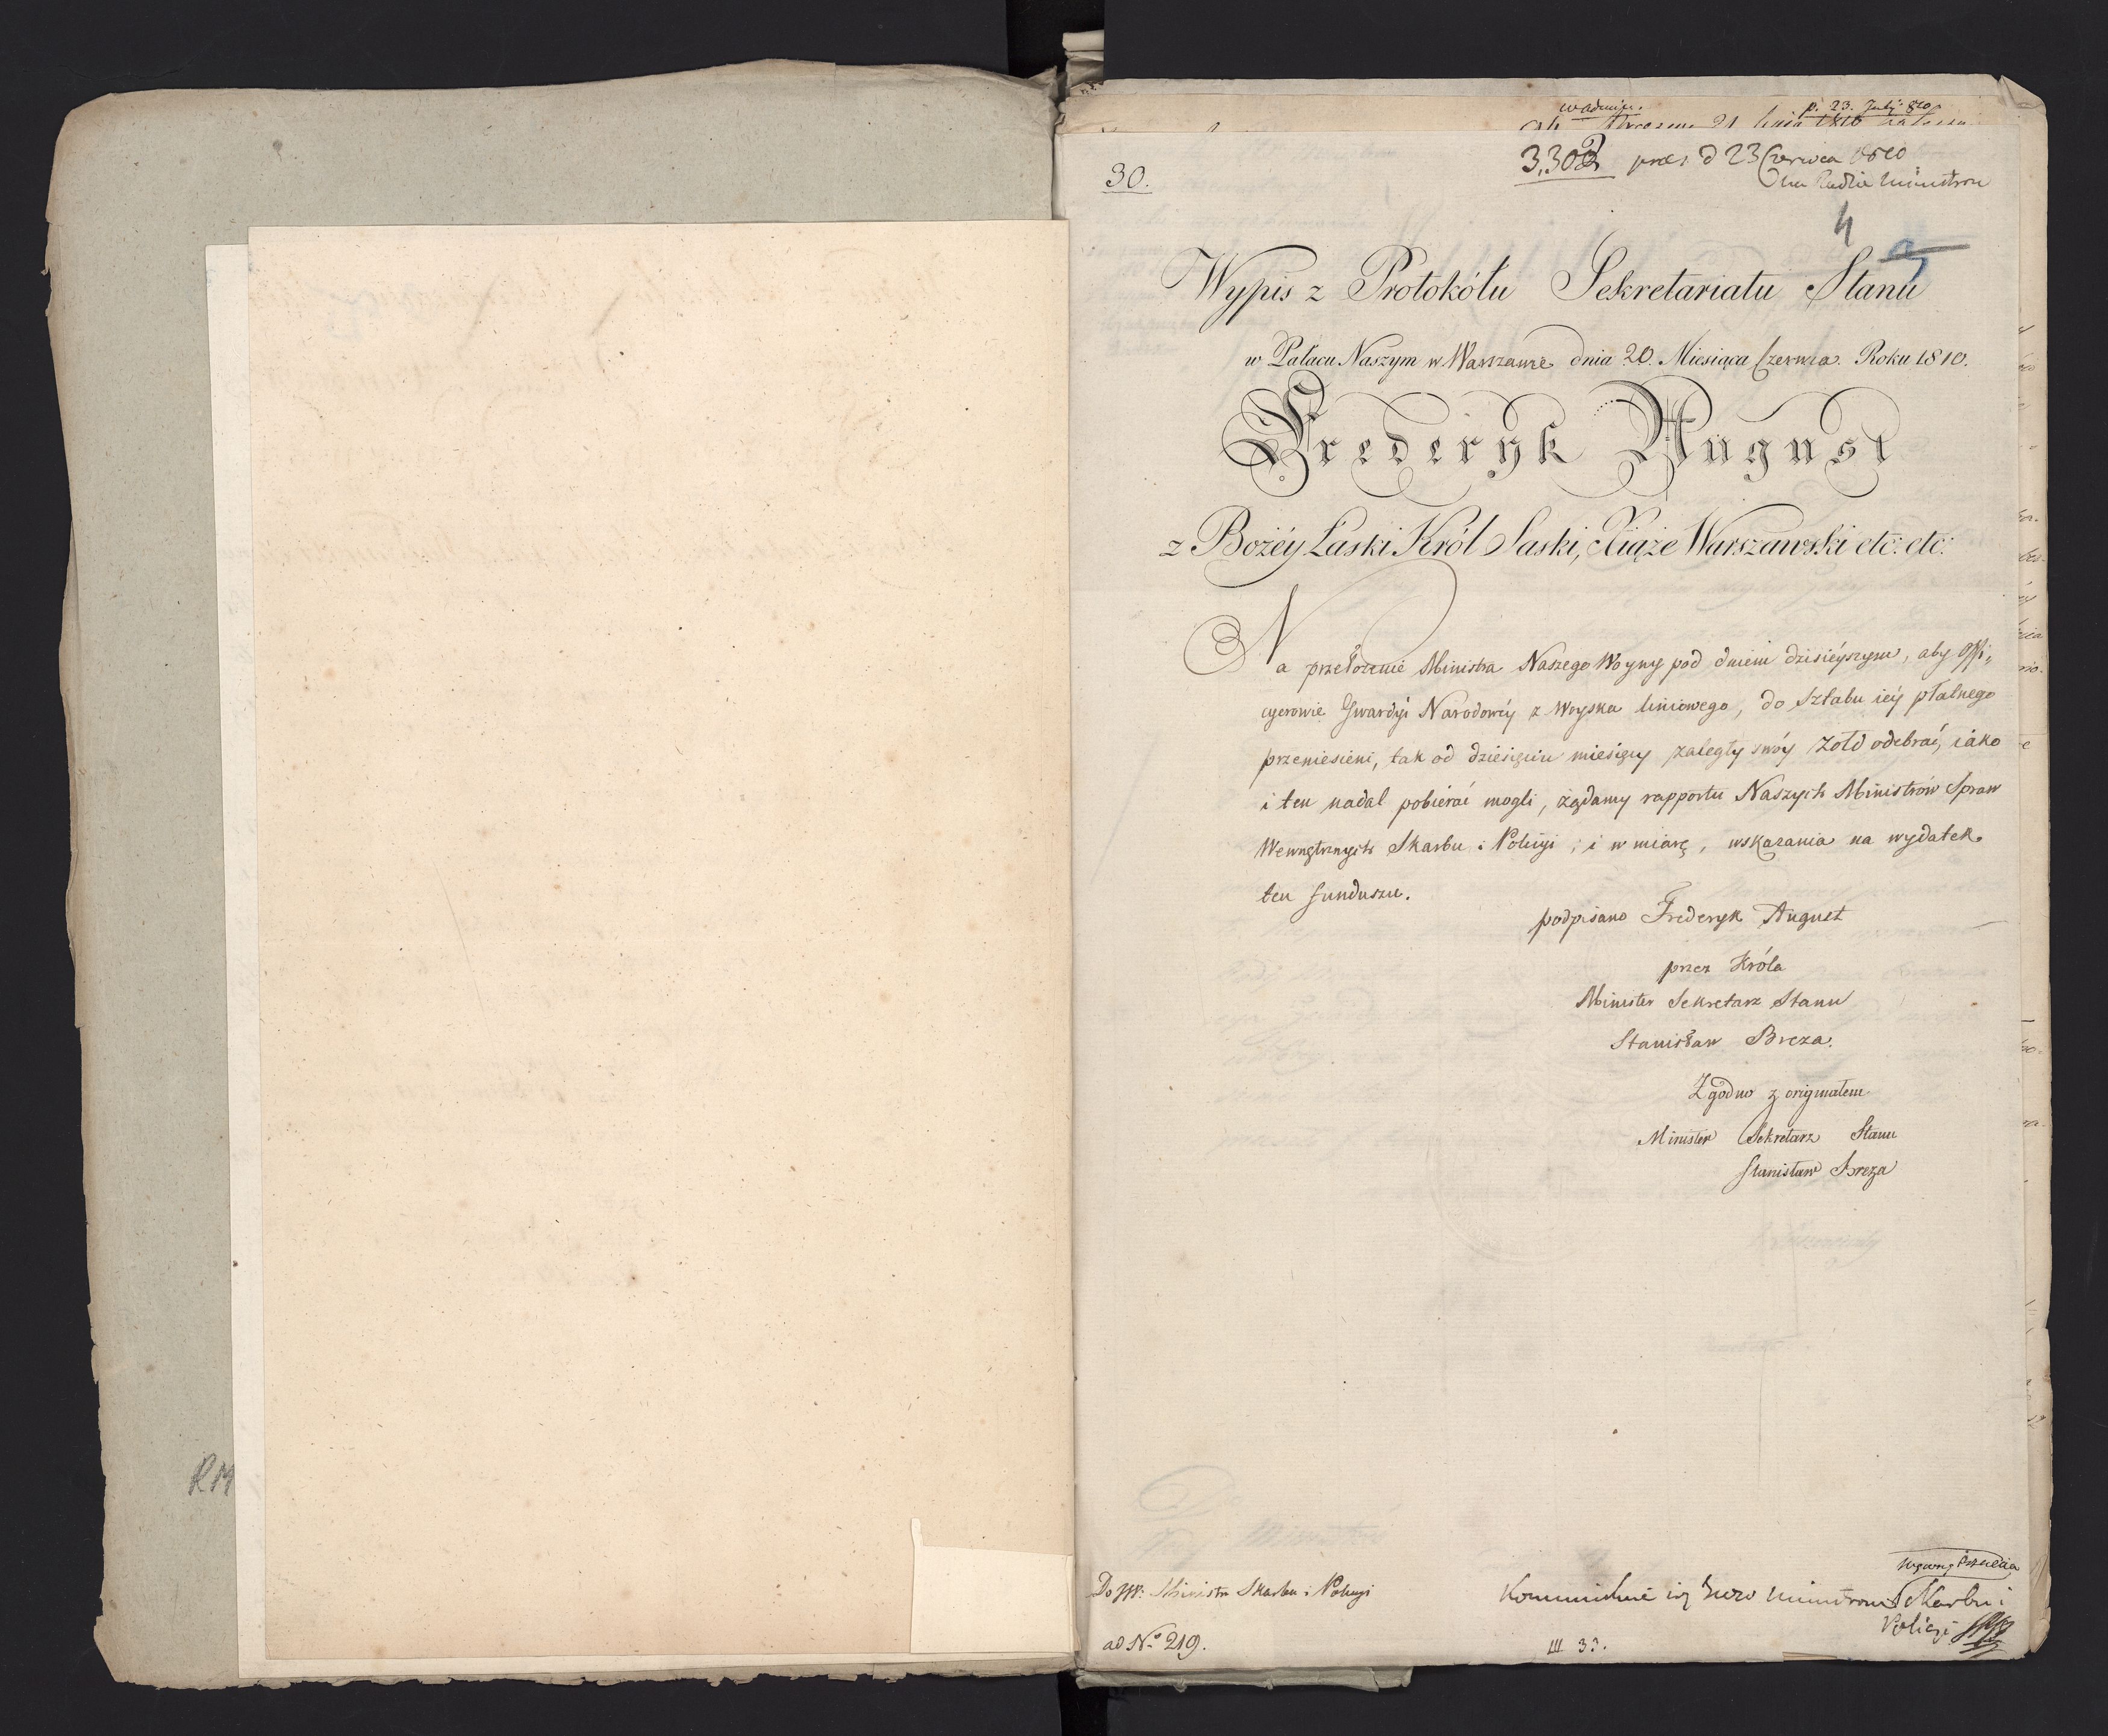 RM
p. 23. Julij 810
30.
3,302 prez: d 23 Czerwca 1810
na Radzie Ministrow
4
Wypis z Protokółu Sekretariatu Stanu
w Pałacu Naszym w Warszawie dnia 20. Miesiąca Czerwca. Roku 1810.
Frederyk August
z Bożéy Łaski Król Saski, Xiąże Warszawski etc: etc:
Na przełożenie Ministra Naszego Woyny pod dniem dzisiéyszym, aby Offi„
cyerowie Gwardyi Narodowéy z Woyska liniowego, do Sztabu iéy płatnego
przeniesieni, tak od dziesięciu miesięcy zaległy swóy Żołd odebrać, iako
i ten nadal pobiérać mogli, żądamy rapportu Naszych Ministrów Spraw
Wewnętrznych Skarbu i Policyi; i w miarę, wskazania na wydatek
ten funduszu.
podpisano Frederyk August
przez Króla
Minister Sekretarz Stanu
Stanisław Breza.
Zgodno z originałem
Minister Sekretarz Stanu
Stanisław Breza
Do JW: Ministra Skarbu i Policyi
ad No 219.
Kommunikuie się Ministrom Skarbu i
Policyi
III 33.